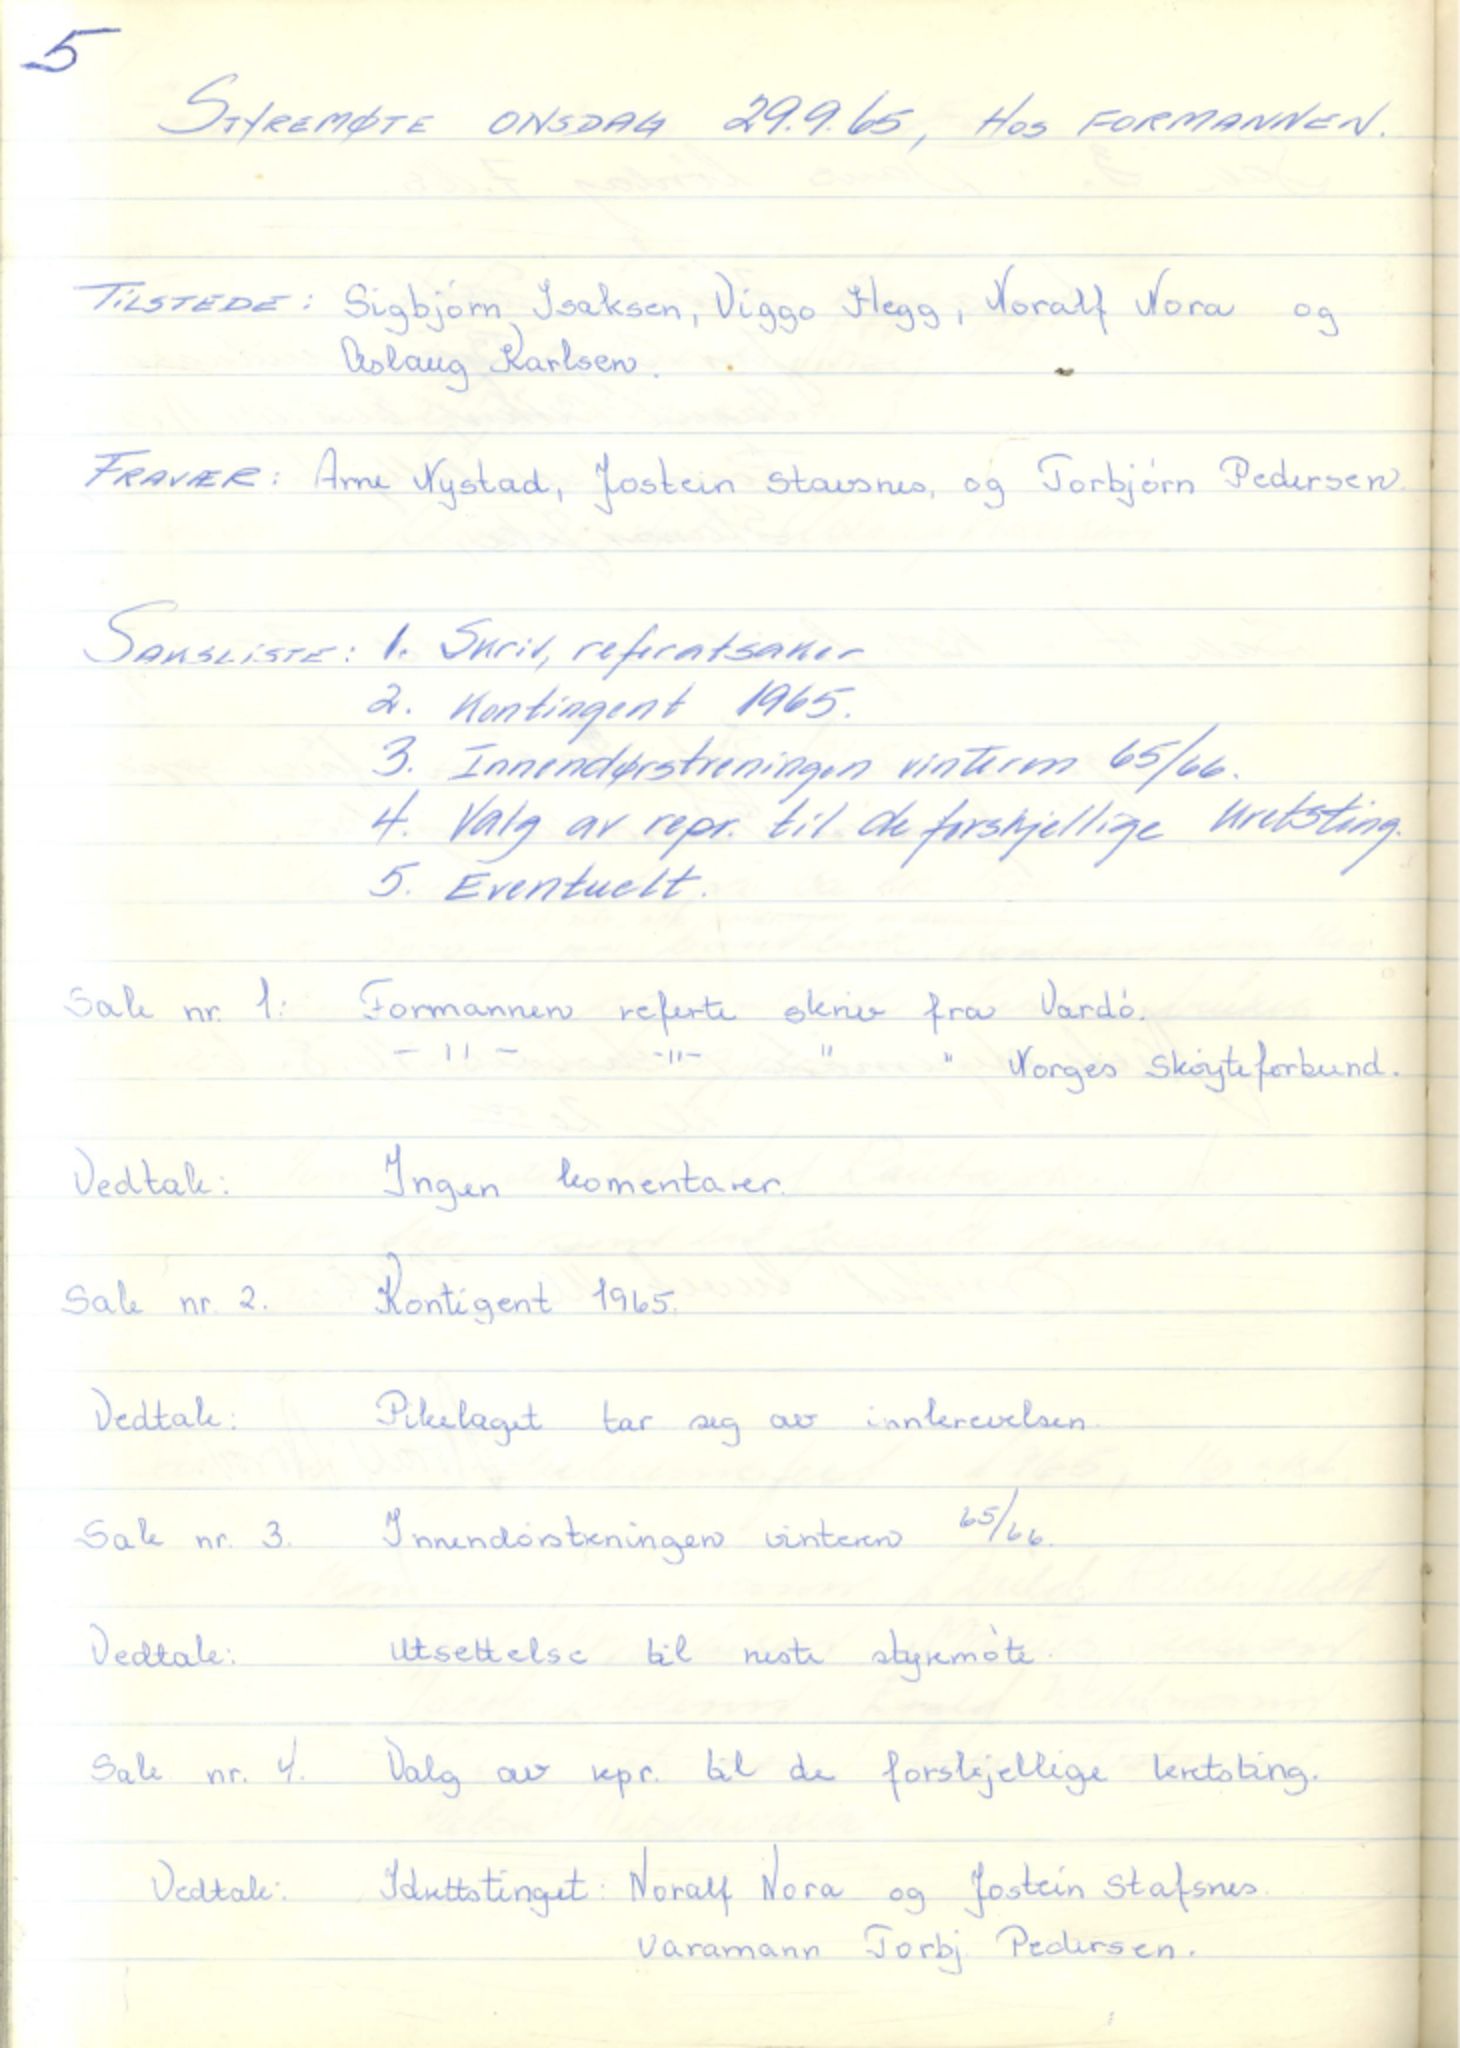 5
STYREMØTE ONSDAG 29.9.65, HOS FORMANNEN.
TILSTEDE: Sigbjørn Isaksen, Viggo Hegg, Noralf Nora og
Aslaug Karlsen.
FRAVÆR: Arne Nystad, Jostein Stavsnes, og Torbjørn Pedersen.
SAKSLISTE: 1. Skriv, referatsaker
2. Kontingent 1965.
3. Innendørstreningen vinteren 65/66.
4. Valg av repr. til de forskjellige kretsting.
5. Eventuelt.
Sak nr. 1: Formannen referte skriv fra Vardø.
- " - -"- " " Norges Skøyteforbund.
Vedtak: Ingen komentarer.
Sak nr. 2. Kontigent 1965.
Vedtak: Pikelaget tar seg av innkrevelsen.
Sak nr. 3. Innendørstreningen vinteren 65/66.
Vedtak: Utsettelse til neste styremøte.
Sak nr. 4. Valg av repr. til de forskjellige kretsting.
Vedtak: Idrettstinget: Noralf Nora og Jostein Stafsnes.
Varamann Torbj. Pedersen.